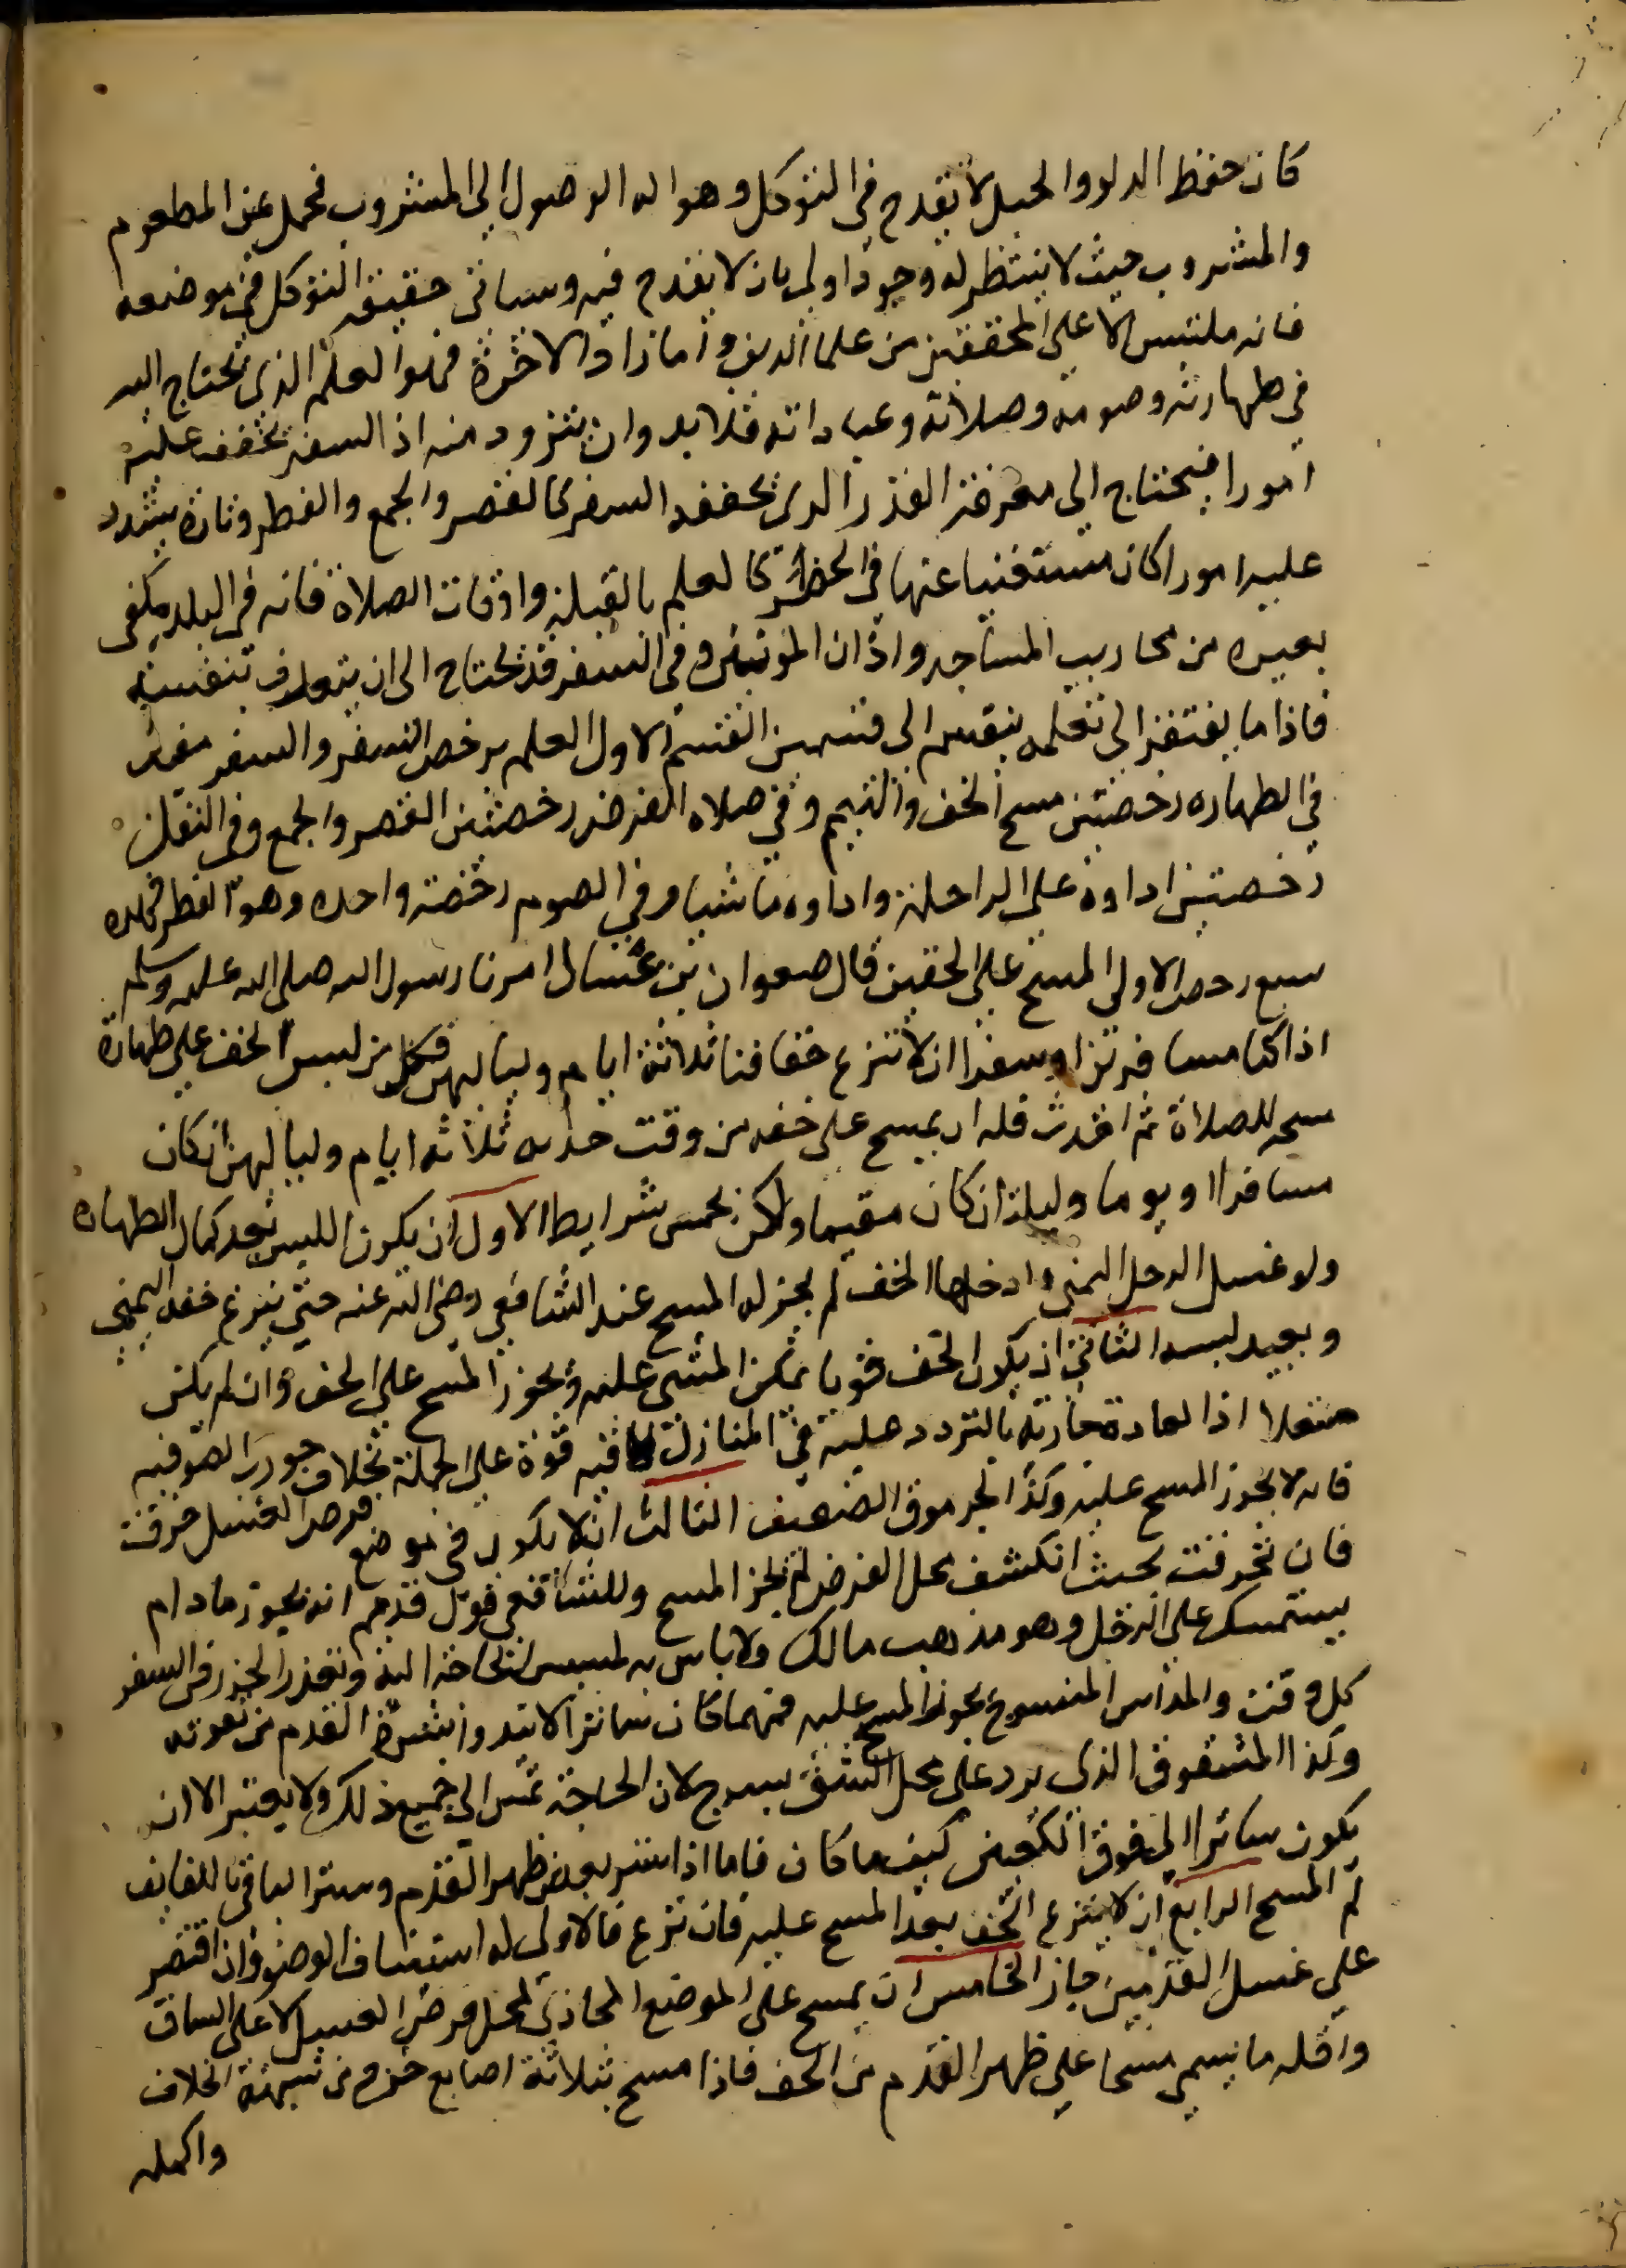 كان حفظ الدلو والحبل لا يقدح في التوكل وهو اله الوصول الى المشروب فحمل عين المطعوم
والمشروب حيث لا ينتظر له وجودا اولى بان لا يقدح فيه وسياتى حقيقة التوكل في موضعه
فانه ملتبس الا على المحققين من علما الدين واما زاد الاخرة فهو العلم الذى يحتاج اليه
في طهارته وصومه وصلاته وعباداته فلا بد وان يتزود منه اذ السفر يخفف عليه
امورا فيحتاج الى معرفة القدر الذى يخففه السفر كالقصر والجمع والفطر وتارة يشدد
عليه امورا كان مستغنيا عنها في الحضر كالعلم بالقبلة واوقات الصلاة فانه في البلد يكفى
بغيره من محاريب المساجد واذان الموذنين وفى السفر قد يحتاج الى ان يتعرف بنفسه
فاذا ما يفتقر الى تعلمه ينقسم الى قسمين القسم الاول العلم برخص السفر والسفر يفيد
في الطهاره رخصتين مسح الخف والتيمم وفي صلاه الفرض رخصتين القصر والجمع وفى النفل
رخصتين اداوه على الراحلة واداوه ماشيا وفي الصوم رخصة واحده وهو الفطر فهذه
سبع رخص الاولى المسح على الخفين قال صفوان بن عسال امرنا رسول الله صلى الله عليه وسلم
اذا كنا مسافرين او سفرا ان لا ننزع خفافنا ثلاثة ايام ولياليهن فكل من لبس الخف على طهارة
مبيحه للصلاة ثم احدث فله ان يمسح على خفه من وقت حدثه ثلاثه ايام ولياليهن ان كان
مسافرا او يوما وليلة ان كان مقيما ولكن بخمس شرايط الاول ان يكون اللبس بعد كمال الطهاره
ولو غسل الرجل اليمنى وادخلها الخف لم يجز له المسح عند الشافعي رضى الله عنه حتى ينزع خفه اليمنى
ويعيد لبسه الثانى ان يكون الخف قويا يمكن المشى عليه ويجوز المسح على الخف وان لم يكن
منعلا اذ العادة جارية بالتردد عليه في المنازل فيه قوة على الجملة بخلاف جورب الصوفيه
فانه لا يجوز المسح عليه وكذا الجرموق الضعيف الثالث ان لا يكون في موضع فرض الغسل خرقت
فان تخرقت بحيث انكشف محل الفرض لم يجز المسح وللشافعي قول قديم انه يجوز مادام
يستمسك على الرجل وهو مذهب مالك ولا باس به لمسيس الحاجة اليه وتعذر الخرز في السفر
كل وقت والمداس المنسوج يجوز المسح عليه مهما كان ساترا لا تبدوا بشرة القدم من
وكذا المشقوق الذى يرد على محل الشق بسرج لان الحاجة تمس الى جميع ذلك ولا يعتبر الا ان
يكون ساترا الى فوق الكعبين كيف ما كان فاما اذا ستر بعض ظهر القدم وستر الباقي باللفايف
لم المسح الرابع ان لا ينزع الخف بعد المسح عليه فان نزع فالاولى له استيناف الوضو وان اقتصر
على غسل القدمين جاز الخامس ان يمسح على الموضع المحاذى لمحل فرض الغسل لا على الساق
واقله ما يسمى مسحا على ظهر القدم من الخف فاذا مسح بثلاثة اصابع خرج من شبهة الخلاف
واكمله